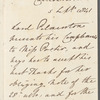 5 Sept. 1841
Lord Palmerston
presents his Compliments
to Miss Porter, and
begs her to accept his
best thanks for her
obliging note of the
and for the